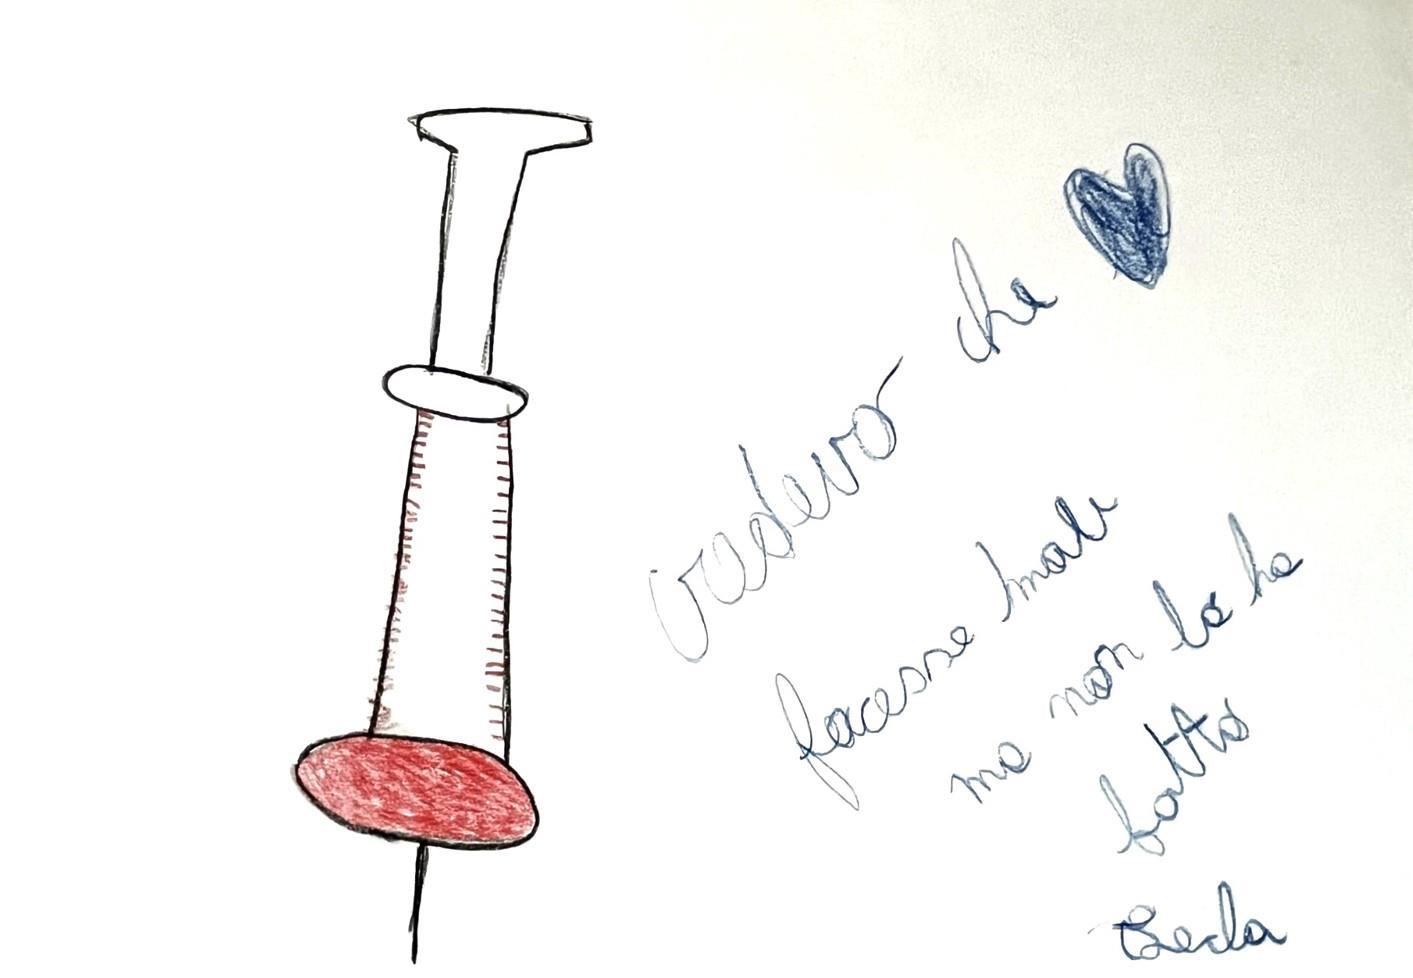 credevo che
facesse male
ma non lo ha
fatto